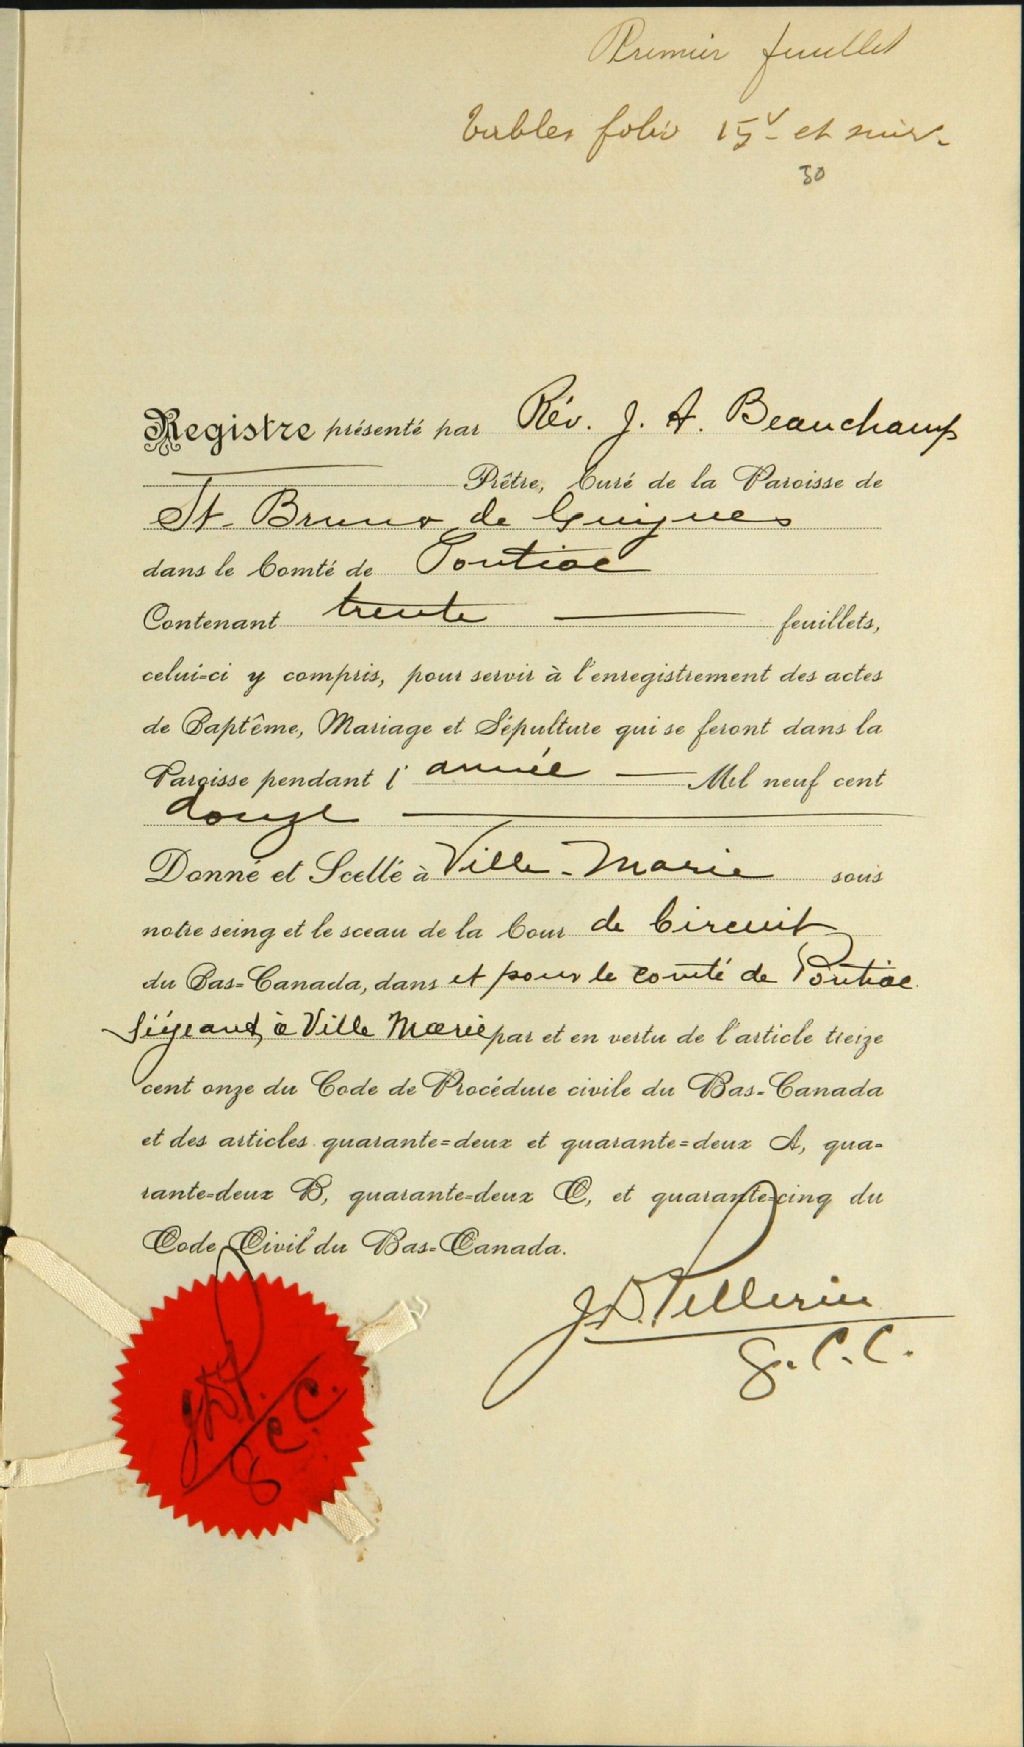 Premier feuillet
Tables folio 15v et suiv.
30
Registre présenté par Rév. J. A. Beauchamp
Prêtre, Curé de la Paroisse de
St. Bruno de Guigues
dans le Comté de Pontiac
Contenant trente feuillets,
celui-ci y compris, pour servir à l'enregistrement des actes
de Baptême, Mariage et Sépulture qui se feront dans la
Paroisse pendant l' année Mil neuf cent
douze
Donné et Scellé à Ville-Marie sous
notre seing et le sceau de la Cour de Circuit
du Bas-Canada, dans et pour le comté de Pontiac
Siégeant à Ville Marie par et en vertu de l'article treize
cent onze du Code de Procédure civile du Bas-Canada
et des articles quarante=deux et quarante=deux A, qua-
rante=deux B, quarante=deux C, et quarante=cinq du
Code Civil du Bas-Canada.
J.D. Pellerin
G.C.C.
JDP.
G C.C.